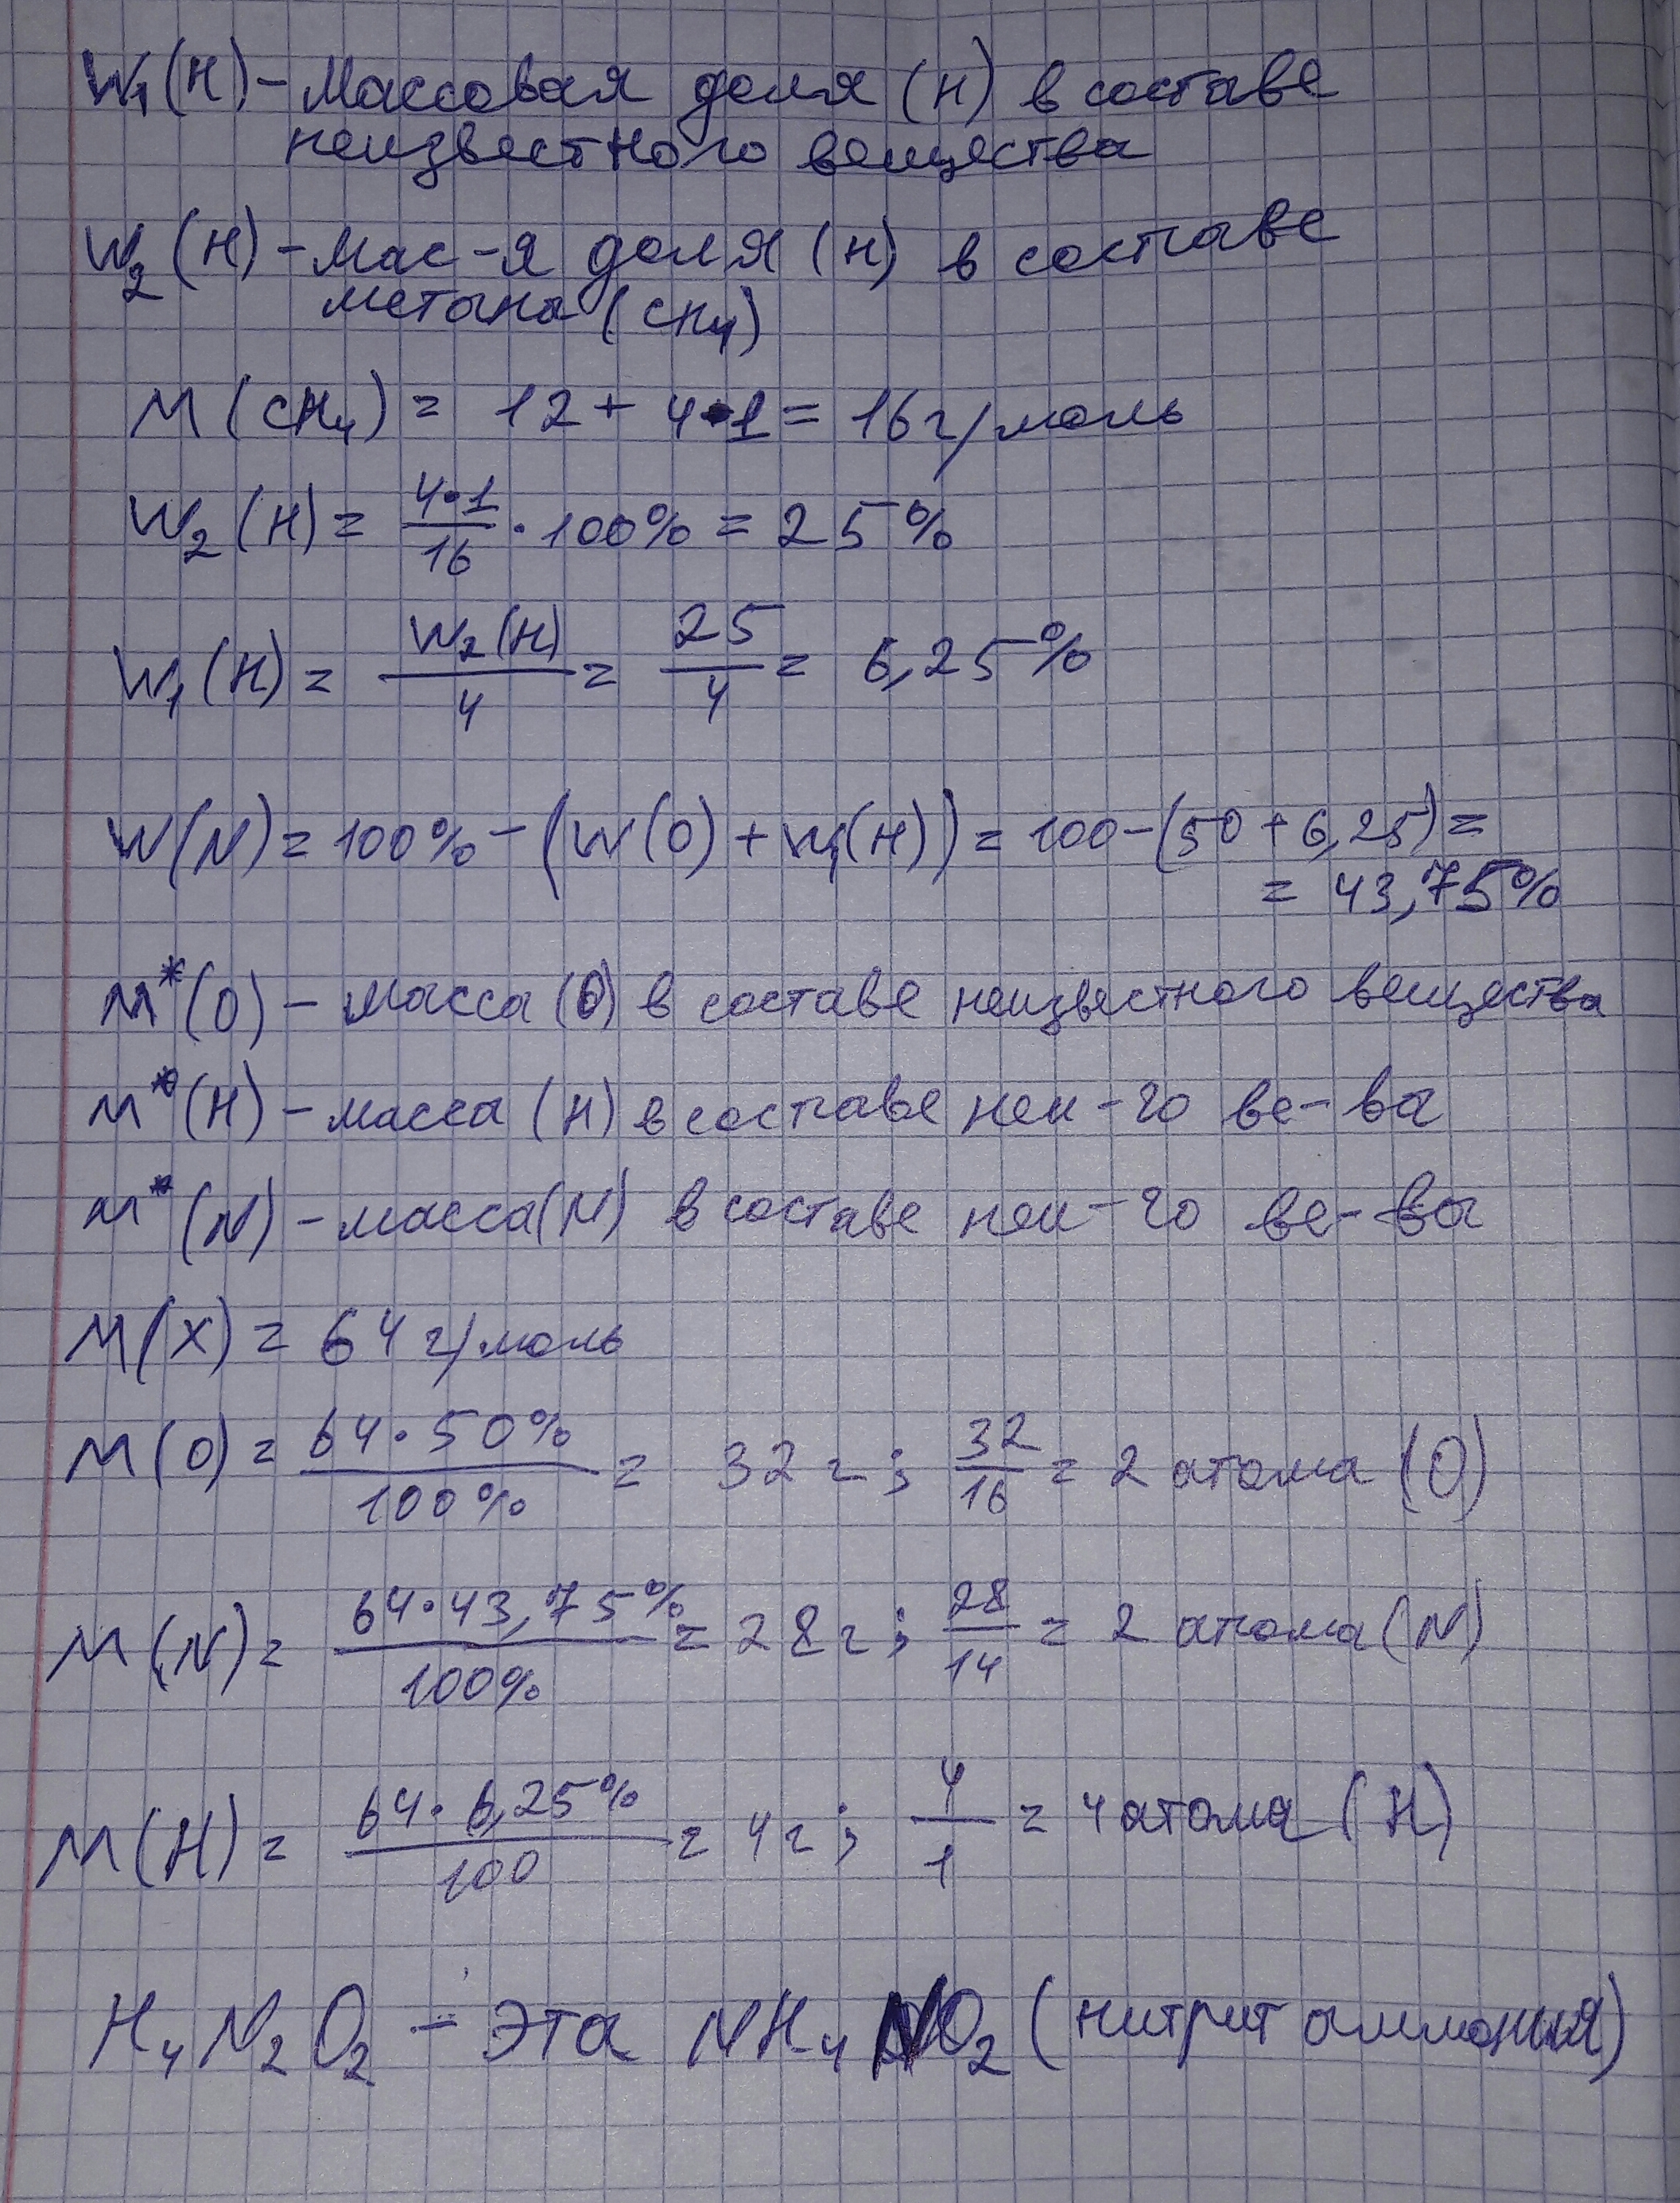 W₁(H) – Массовая доля (H) в составе
неизвестного вещества
W₂(H) – Мас-я доля (H) в составе
метана (CH₄)
M(CH₄) = 12 + 4•1 = 16 г/моль
W₂(H) = 4•1/16 • 100% = 25%
W₁(H) = W₂(H)/4 = 25/4 = 6,25%
W(N) = 100% – (W(O) + W₁(H)) = 100 – (50 + 6,25) =
= 43,75%
M*(O) – масса (O) в составе неизвестного вещества
M*(H) – масса (H) в составе неи-го ве-ва
M*(N) – масса (N) в составе неи-го ве-ва
M(X) = 64 г/моль
M(O) = 64•50%/100% = 32 г; 32/16 = 2 атома (O)
M(N) = 64•43,75%/100% = 28 г; 28/14 = 2 атома (N)
M(H) = 64•6,25%/100 = 4 г; 4/1 = 4 атома (H)
H₄N₂O₂ – Эта NH₄NO₂ (нитрит аммония)